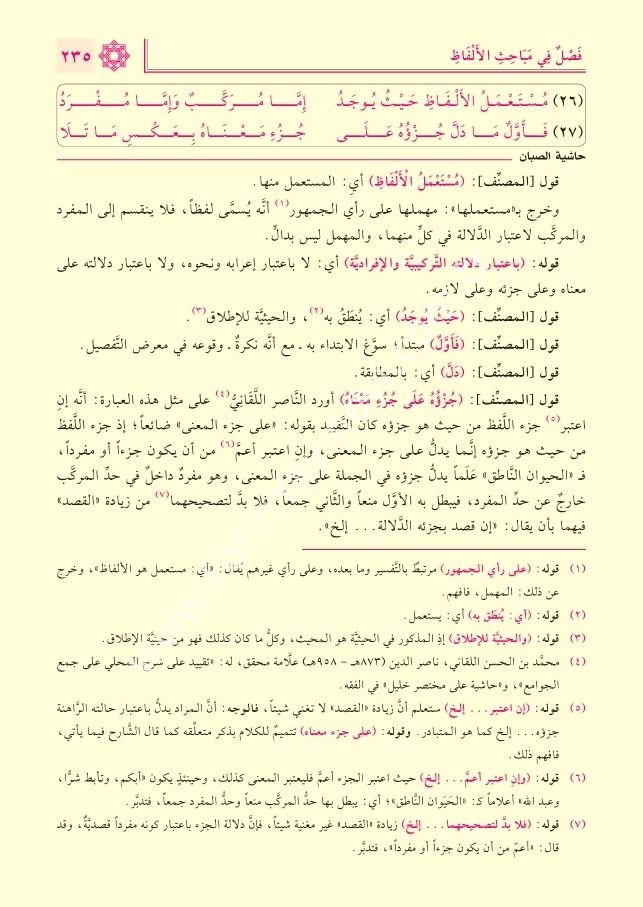 فَصْلٌ فِي مَبَاحِثِ الأَلْفَاظِ
٢٣٥
(٢٦) مُسْتَعْمَلُ الأَلْفَاظِ حَيْثُ يُوجَدُ إِمَّا مُرَكَّبٌ وَإِمَّا مُفْرَدُ
(٢٧) فَأَوَّلٌ مَا دَلَّ جُزْؤُهُ عَلَى جُزْءِ مَعْنَاهُ بِعَكْسِ مَا تَلَا
حاشية الصبان
قول [المصنِّف]: (مُسْتَعْمَلُ الْأَلْفَاظِ) أي: المستعمل منها.
وخرج بـ«مستعملها»: مهملها على رأي الجمهور(١) أنَّه يُسمَّى لفظاً، فلا ينقسم إلى المفرد
والمركَّب لاعتبار الدَّلالة في كلِّ منهما، والمهمل ليس بدالٍّ.
قوله: (باعتبار دلالته التَّركيبيَّة والإفراديَّة) أي: لا باعتبار إعرابه ونحوه، ولا باعتبار دلالته على
معناه وعلى جزئه وعلى لازمه.
قول [المصنِّف]: (حَيْثُ يُوجَدُ) أي: يُنطَقُ به(٢)، والحيثيَّة للإطلاق(٣).
قول [المصنِّف]: (فَأَوَّلٌ) مبتدأ؛ سوَّغ الابتداء به ـ مع أنَّه نكرةٌ ـ وقوعه في معرض التَّفصيل.
قول [المصنِّف]: (دَلَّ) أي: بالمطابقة.
قول [المصنِّف]: (جُزْؤُهُ عَلَى جُزْءِ مَعْنَاهُ) أورد النَّاصر اللَّقَانِيُّ(٤) على مثل هذه العبارة: أنَّه إنِ
اعتبر(٥) جزء اللَّفظ من حيث هو جزؤه كان التَّقييد بقوله: «على جزء المعنى» ضائعاً؛ إذ جزء اللَّفظ
من حيث هو جزؤه إنَّما يدلُّ على جزء المعنى، وإنِ اعتبر أعمَّ(٦) من أن يكون جزءاً أو مفرداً،
فـ «الحيوان النَّاطق» عَلَماً يدلُّ جزؤه في الجملة على جزء المعنى، وهو مفردٌ داخلٌ في حدِّ المركَّب
خارجٌ عن حدِّ المفرد، فيبطل به الأوَّل منعاً والثَّاني جمعاً، فلا بدَّ لتصحيحهما(٧) من زيادة «القصد»
فيهما بأن يقال: «إن قصد بجزئه الدَّلالة... إلخ».
(١) قوله: (على رأي الجمهور) مرتبطٌ بالتَّفسير وما بعده، وعلى رأي غيرهم يُقال: «أي: مستعمل هو الألفاظ»، وخرج
عن ذلك: المهمل، فافهم.
(٢) قوله: (أي: يُنطَق به) أي: يستعمل.
(٣) قوله: (والحيثيَّة للإطلاق) إذِ المذكور في الحيثيَّة هو المحيث، وكلُّ ما كان كذلك فهو من حيثيَّة الإطلاق.
(٤) محمَّد بن الحسن اللقاني، ناصر الدين (٨٧٣هـ - ٩٥٨هـ) علَّامة محقق، له: «تقييد على شرح المحلي على جمع
الجوامع»، و«حاشية على مختصر خليل» في الفقه.
(٥) قوله: (إن اعتبر... إلخ) ستعلم أنَّ زيادة «القصد» لا تغني شيئاً، فالوجه: أنَّ المراد يدلُّ باعتبار حالته الرَّاهنة
جزؤه... إلخ كما هو المتبادر. وقوله: (على جزء معناه) تتميمٌ للكلام بذكر متعلَّقه كما قال الشَّارح فيما يأتي،
فافهم ذلك.
(٦) قوله: (وإن اعتبر أعمَّ... إلخ) حيث اعتبر الجزء أعمَّ فليعتبر المعنى كذلك، وحينئذٍ يكون «أبكم، وتأبط شرًّا،
وعبد الله» أعلاماً كـ: «الحَيَوان النَّاطق»؛ أي: يبطل بها حدُّ المركَّب منعاً وحدُّ المفرد جمعاً، فتدبَّر.
(٧) قوله: (فلا بدَّ لتصحيحهما... إلخ) زيادة «القصد» غير مغنية شيئاً، فإنَّ دلالة الجزء باعتبار كونه مفرداً قصديَّةٌ، وقد
قال: «أعمّ من أن يكون جزءاً أو مفرداً»، فتدبَّر.